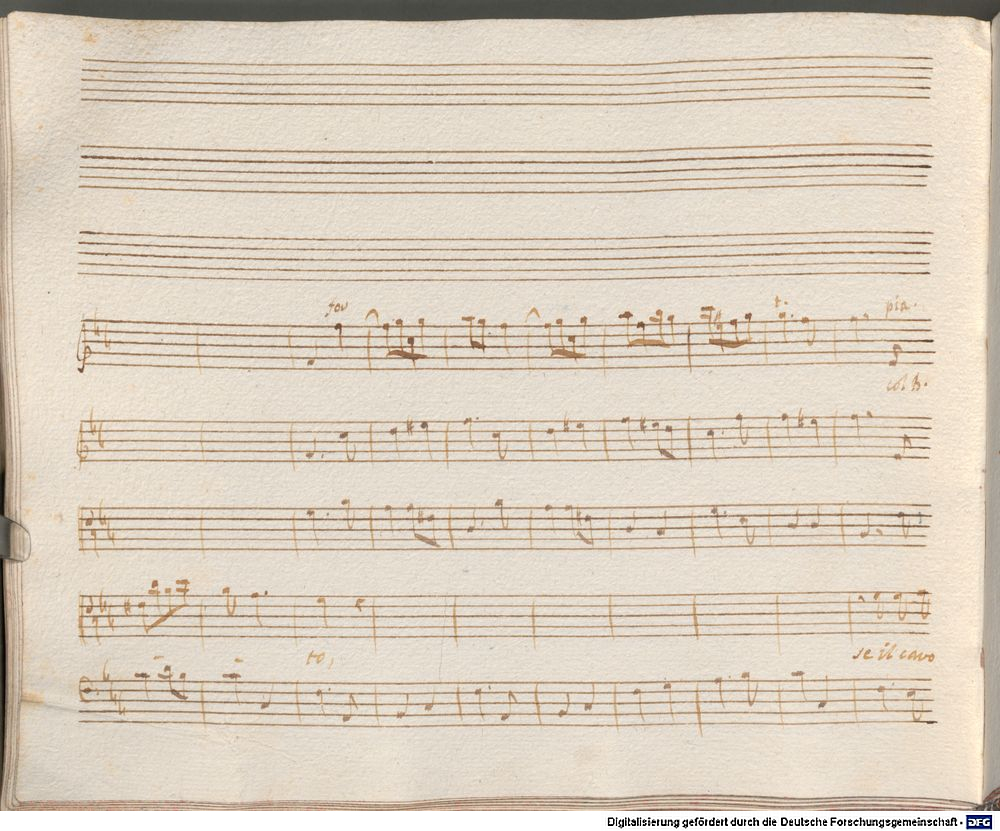 for
t.
pia.
col B.
to,
se il cavo
Digitalisierung gefördert durch die Deutsche Forschungsgemeinschaft - DFG